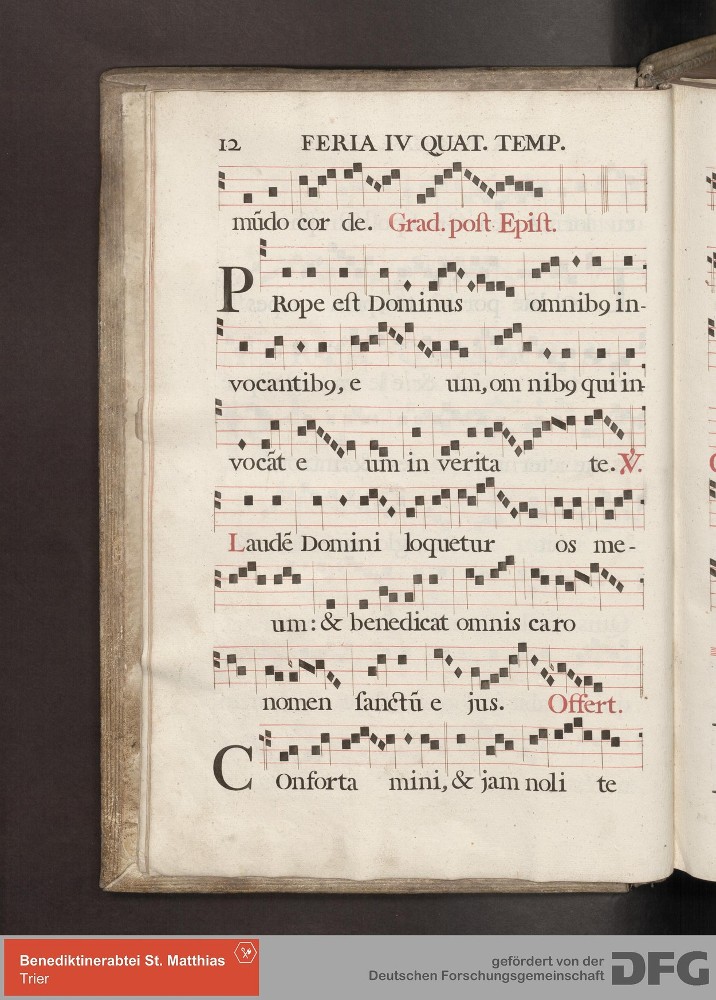 12 FERIA IV QUAT. TEMP.
mũdo cor de. Grad. poſt Epiſt.
PRope eſt Dominus omnibꝯ in-
vocantibꝯ, e um, om nibꝯ qui in-
vocãt e um in verita te. ℣.
Laudẽ Domini loquetur os me-
um: & benedicat omnis caro
nomen ſanctũ e jus. Offert.
COnforta mini, & jam noli te
Benediktinerabtei St. Matthias
Trier
gefördert von der
Deutschen Forschungsgemeinschaft DFG